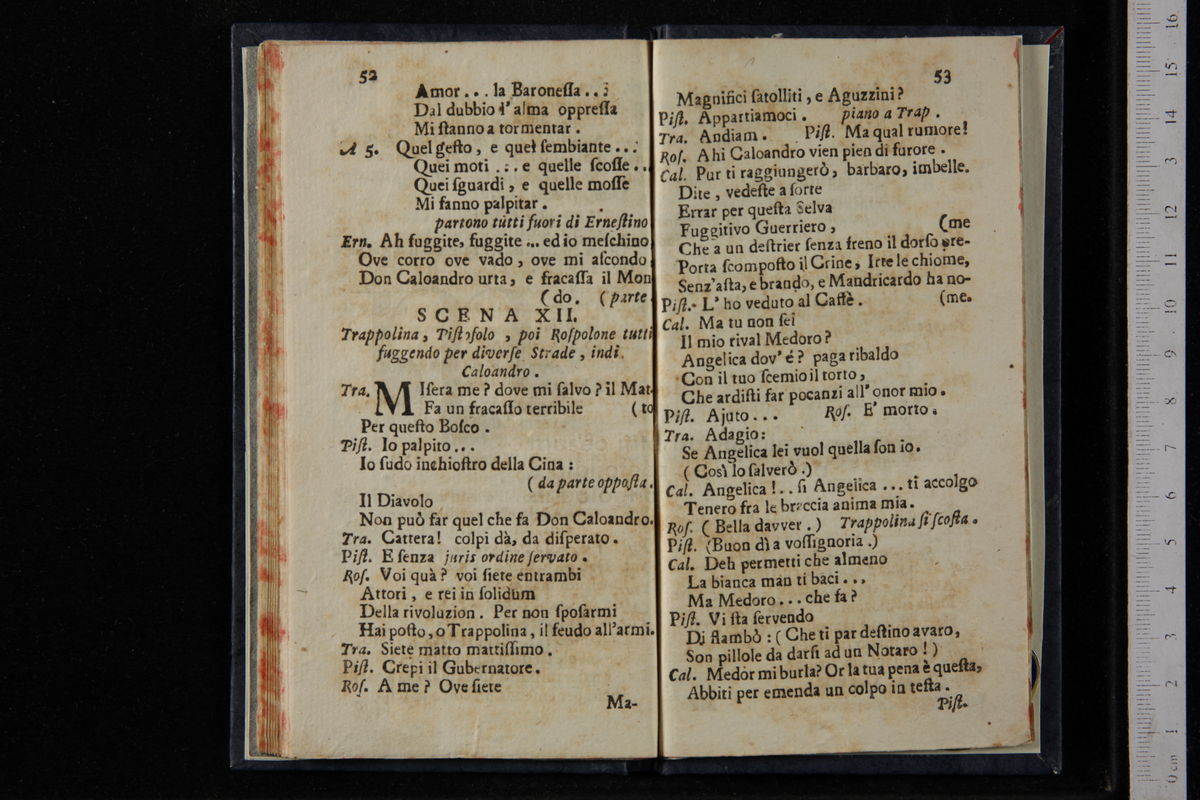 52
Amor... la Baronessa..:
Dal dubbio l'alma oppressa
Mi stanno a tormentar.
A 5. Quel gesto, e quel sembiante...
Quei moti ... e quelle scosse..
Quei sguardi, e quelle mosse
Mi fanno palpitar.
partono tutti fuori di Ernestino
Ern. Ah fuggite, fuggite ... ed io meschino
Ove corro ove vado, ove mi ascondo
Don Caloandro urta, e fracassa il Mon
(do. (parte.
SCENA XII.
Trappolina, Pistofolo, poi Rospolone tutti
fuggendo per diverse Strade, indi
Caloandro.
Tra. MIsera me? dove mi salvo? il Mat-
Fa un fracasso terribile (to
Per questo Bosco.
Pist. Io palpito...
Io sudo inchiostro della Cina:
(da parte opposta.
Il Diavolo
Non può far quel che fa Don Caloandro.
Tra. Cattera! colpi dà, da disperato.
Pist. E senza juris ordine servato.
Ros. Voi quà? voi siete entrambi
Attori, e rei in solidum
Della rivoluzion. Per non sposarmi
Hai posto, o Trappolina, il feudo all'armi.
Tra. Siete matto mattissimo.
Pist. Crepi il Gubernatore.
Ros. A me? Ove siete
Ma-
53
Magnifici satolliti, e Aguzzini?
Pist. Appartiamoci. piano a Trap.
Tra. Andiam. Pist. Ma qual rumore!
Ros. Ahi Caloandro vien pien di furore.
Cal. Pur ti raggiungerò, barbaro, imbelle.
Dite, vedeste a sorte
Errar per questa Selva
Fuggitivo Guerriero, (me
Che a un destrier senza freno il dorso pre-
Porta scomposto il Crine, Irte le chiome,
Senz'asta, e brando, e Mandricardo ha no-
Pist. L'ho veduto al Caffè. (me.
Cal. Ma tu non sei
Il mio rival Medoro?
Angelica dov'é? paga ribaldo
Con il tuo scemio il torto,
Che ardisti far pocanzi all'onor mio.
Pist. Ajuto... Ros. E' morto.
Tra. Adagio:
Se Angelica lei vuol quella son io.
(Così lo salverò.)
Cal. Angelica!.. si Angelica ... ti accolgo
Tenero fra le braccia anima mia.
Ros. (Bella davver.) Trappolina si scosta.
Pist. (Buon dì a vossignoria.)
Cal. Deh permetti che almeno
La bianca man ti baci...
Ma Medoro... che fa?
Pist. Vi sta servendo
Di flambò: (Che ti par destino avaro,
Son pillole da darsi ad un Notaro!)
Cal. Medòr mi burla? Or la tua pena è questa,
Abbiti per emenda un colpo in testa.
Pist.
0 cm 1 2 3 4 5 6 7 8 9 10 11 12 13 14 15 16